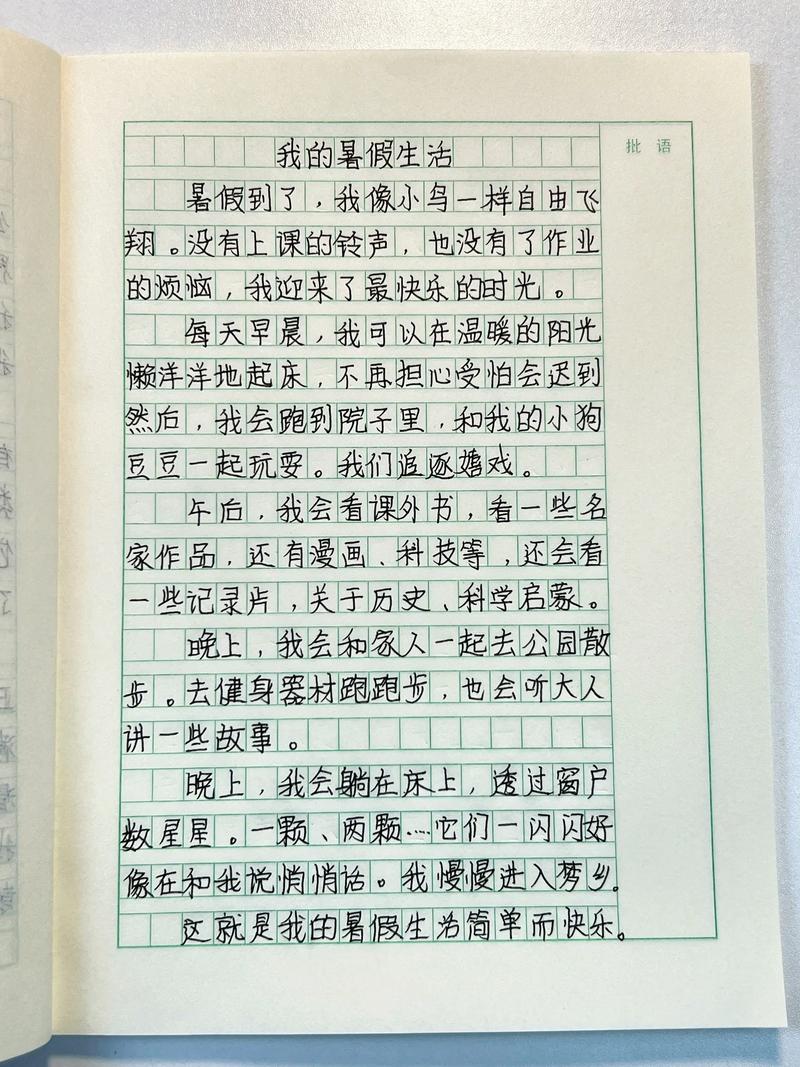 批 语
我的暑假生活
暑假到了，我像小鸟一样自由飞
翔。没有上课的铃声，也没有了作业
的烦恼，我迎来了最快乐的时光。
每天早晨，我可以在温暖的阳光
懒洋洋地起床，不再担心受怕会迟到
然后，我会跑到院子里，和我的小狗
豆豆一起玩耍。我们追逐嬉戏。
午后，我会看课外书，看一些名
家作品，还有漫画、科技等，还会看
一些记录片，关于历史、科学启蒙。
晚上，我会和家人一起去公园散
步。去健身器材跑跑步，也会听大人
讲一些故事。
晚上，我会躺在床上，透过窗户
数星星。一颗、两颗……它们一闪闪好
像在和我说悄悄话。我慢慢进入梦乡。
这就是我的暑假生活简单而快乐。